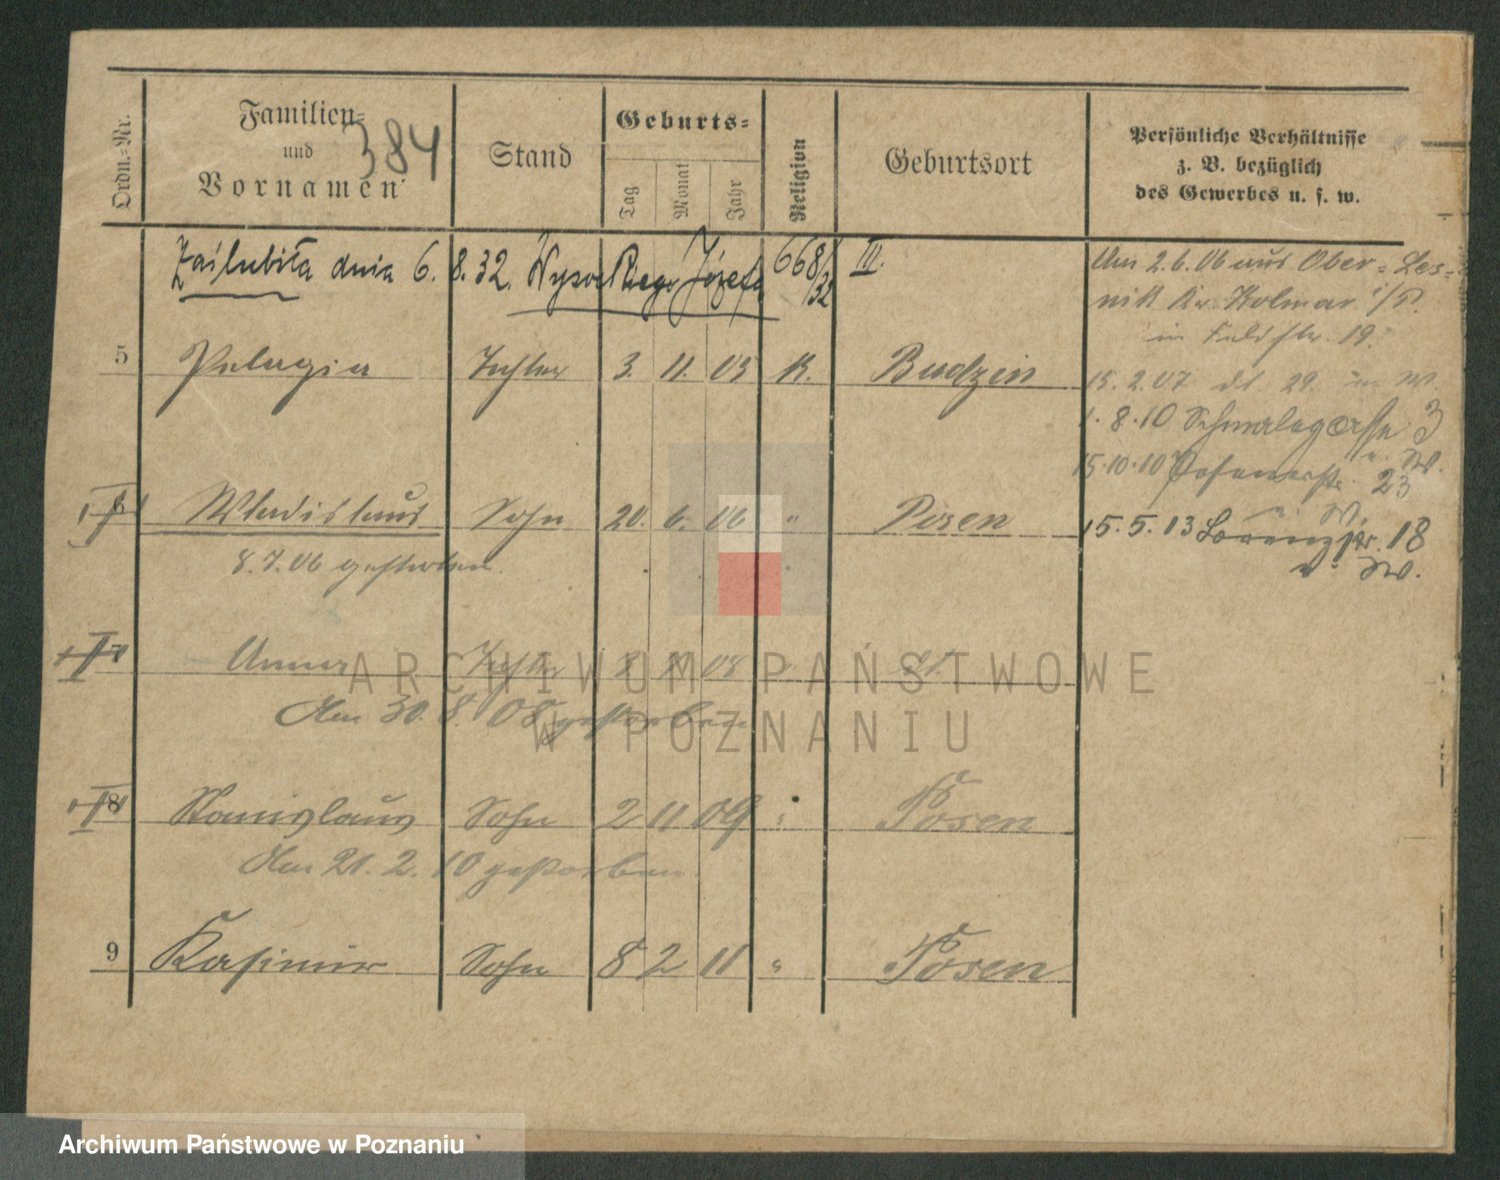 Ordn.-Nr.
Familien-
und
Vornamen
384
Stand
Geburts-
Tag
Monat
Jahr
Religion
Geburtsort
Persönliche Verhältnisse
z. B. bezüglich
des Gewerbes u. s. w.
Zaślubiła dnia 6.8.32. Wysockiego Józefa 668/32 III.
Am 2.6.06 aus Ober-Les-
nik Kr. Kolmar i/P.
in Feldstr. 19.
5 Pelagia Tochter 3. 11. 05 K. Budzin
15.2.07 dt. 29. in W
1.8.10 Schmalegasse 3
15.10.10 Posenerstr. 23
6 Wladislaus Sohn 20. 6. 06 " Posen
15.5.13 Lorenzstr. 18
8.7.06 gestorben.
7 Anna Tochter 8 08 "
Am 30.8.08 gestorben
8 Stanislaus Sohn 2 11 09 " Posen
Am 21.2.10 gestorben.
9 Kasimir Sohn 8 2 11 " Posen
ARCHIWUM PAŃSTWOWE
W POZNANIU
Archiwum Państwowe w Poznaniu